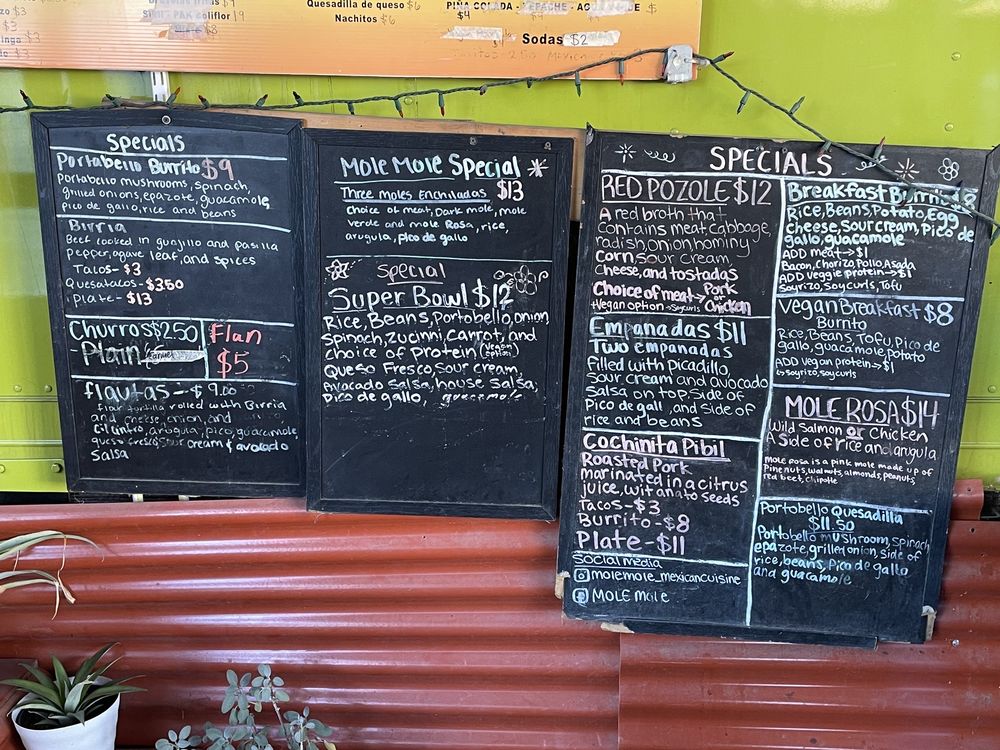 Quesadilla de queso $6
Nachitos $6
PIÑA COLADA
$4
Sodas $2
SPECIALS
Portabello Burrito $9
Portabello mushrooms, spinach,
grilled onions, epazote, guacamole,
pico de gallo, rice and beans
Birria
Beef cooked in guajillo and pasilla
pepper, agave leaf, and spices
Tacos- $3
Quesatacos- $3.50
Plate- $13
Churros $2.50
-Plain
Flan
$5
flautas -- $9.00
flour tortilla rolled with Birria
and cheese, onion, and
cilantro, arugula, pico, guacamole,
queso fresco, sour cream & avocado
salsa
Mole Mole Special
Three moles Enchiladas $13
Choice of meat, Dark mole, mole
verde and mole Rosa, rice,
arugula, pico de gallo
Special
Super Bowl $12
Rice, Beans, Portobello, onion,
Spinach, zucinni, carrot, and
choice of Protein (vegan option)
Queso Fresco, sour cream,
Avocado salsa, house salsa,
pico de gallo, guacamole
SPECIALS
RED POZOLE $12
A red broth that
contains meat, cabbage,
radish, onion, hominy
corn, sour cream,
cheese, and tostadas
Choice of meat→ Pork or Chicken
*Vegan option→ soycurls
Empanadas $11
Two empanadas
Filled with picadillo,
Sour cream and avocado
Salsa on top, side of
Pico de gall, and side of
rice and beans
Cochinita Pibil
Roasted Pork
marinated in a citrus
juice, wit anato seeds
Tacos-$3
Burrito-$8
Plate-$11
Social media
molemole_mexicancuisine
MOLE Mole
Breakfast
Rice, Beans, Potato, Egg
cheese, sour cream, Pico de
gallo, guacamole
ADD meat→$1
Bacon, Chorizo, Pollo, Asada
ADD veggie protein→$1
Soyrizo, Soycurls, Tofu
Vegan Breakfast $8
Burrito
Rice, Beans, Tofu, Pico de
gallo, guacamole, potato
ADD vegan protein→$1
↳soyrizo, soycurls
MOLE ROSA $14
Wild Salmon or Chicken
A side of rice and arugula
Mole Rosa is a pink mole made up of
Pine nuts, walnuts, almonds, peanuts,
red beet, chipotle
Portobello Quesadilla
$11.50
Portobello mushroom, spinach,
epazote, grilled onion, side of
rice, beans, Pico de gallo
and guacamole